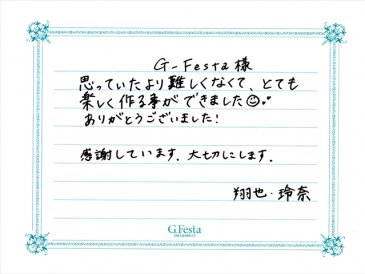 G-Festa 様
思っていたより難しくなくて、とても
楽しく作る事ができました
ありがとうございました!
感謝しています。大切にします。
翔也・玲奈
G.Festa